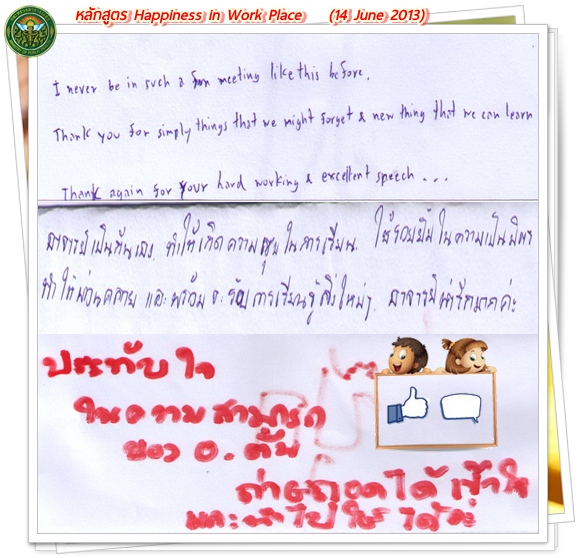 หลักสูตร Happiness in Work Place (14 June 2013)
I never be in such a fun meeting like this before.
Thank you for simply things that we might forget & new thing that we can learn
Thank again for your hard working & excellent speech ...
อาจารย์เป็นกันเอง ทำให้เกิดความสุขในการเรียน ใช้รอยยิ้มในความเป็นมิตร
ทำให้ผ่อนคลาย และพร้อมจะรับการเรียนรู้สิ่งใหม่ๆ อาจารย์น่ารักมากค่ะ
ประทับใจ
ในความสามารถ
ของ อ.
ถ่ายทอดได้ เข้าใจ
และนำไปใช้ได้